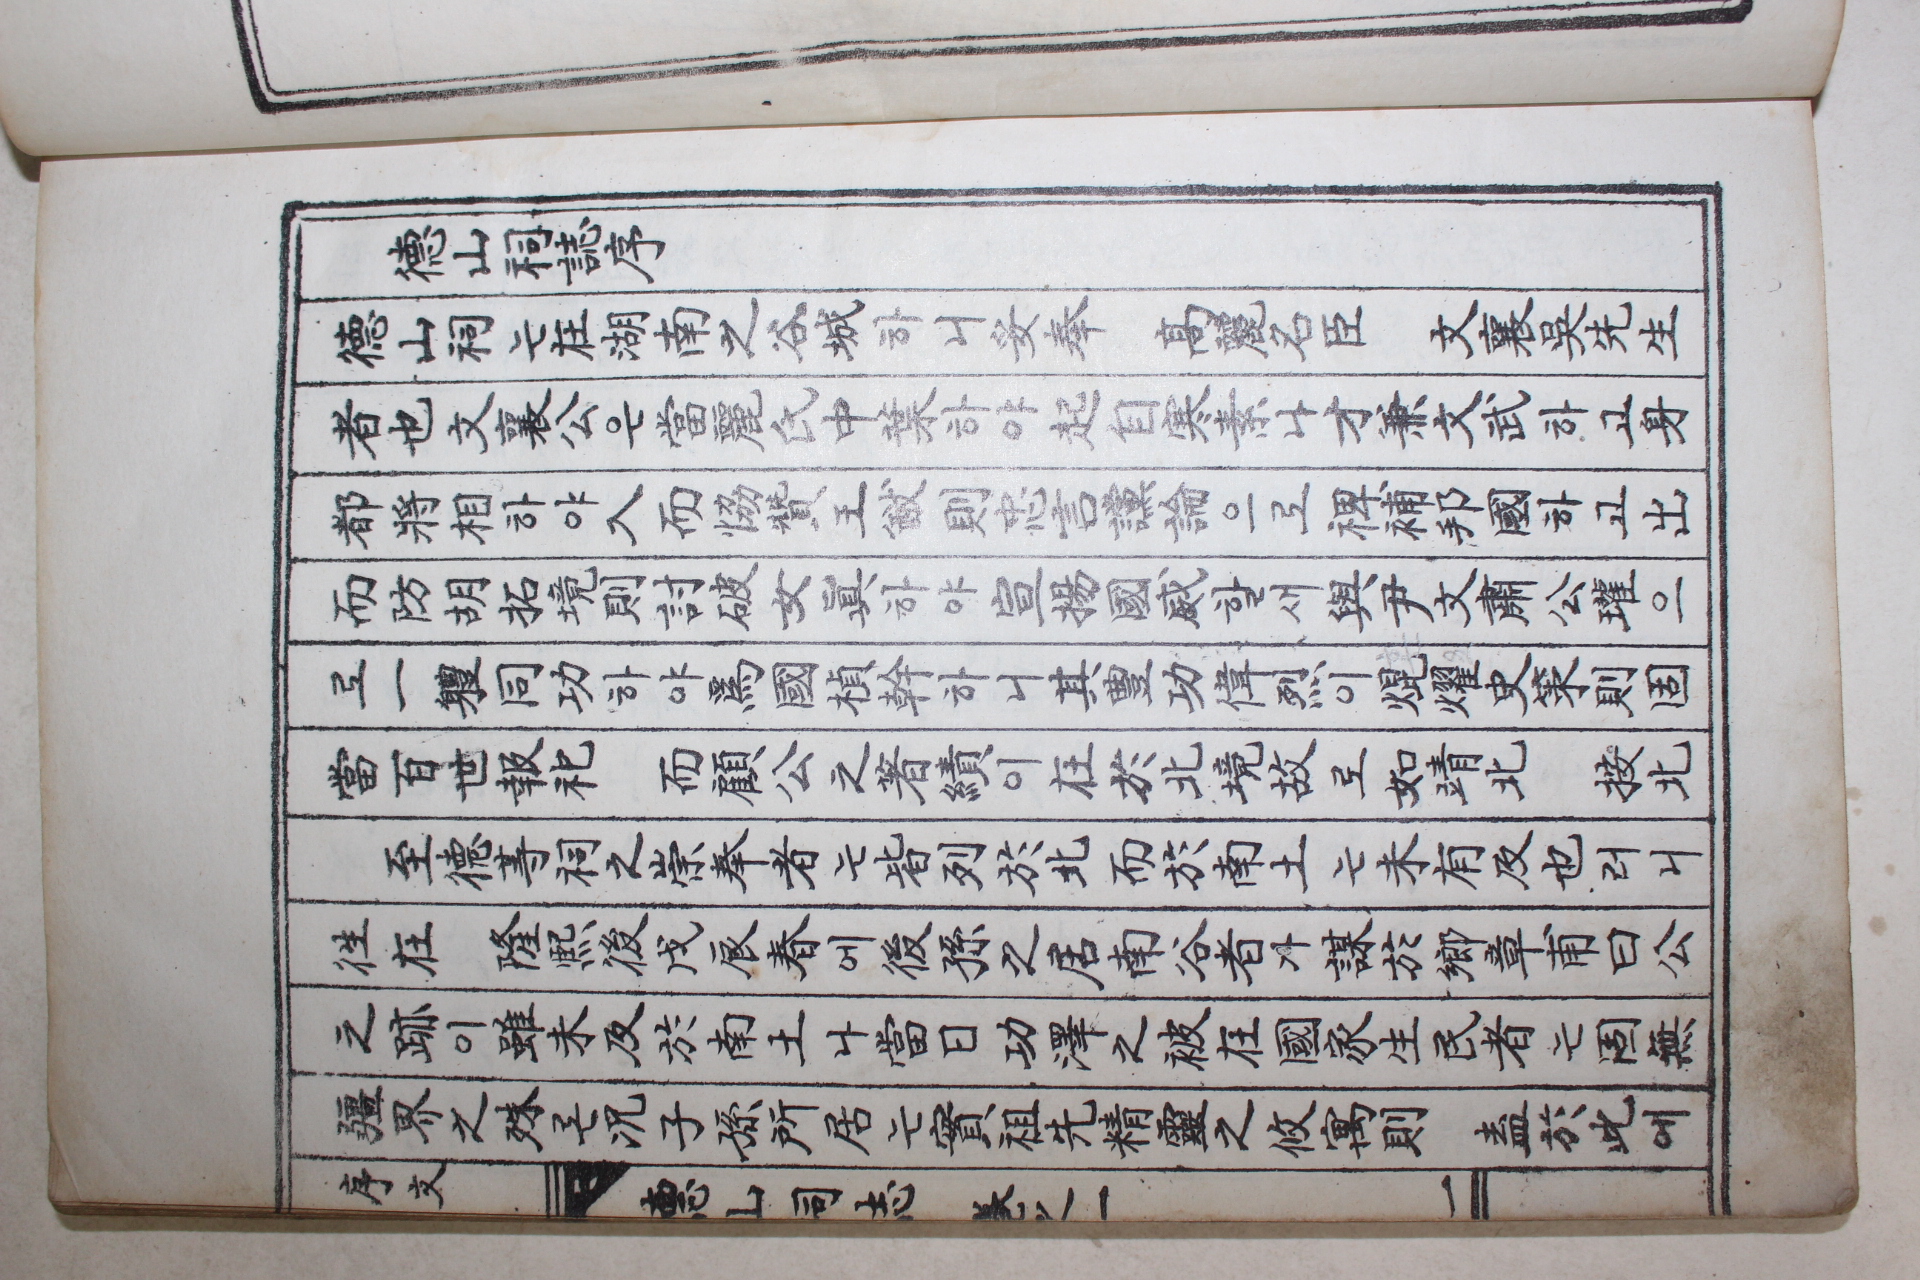 德山祠誌序
德山祠는在湖南之谷城하니妥奉 高麗名臣 文襄吳先生
者也文襄公은當麗氏中葉하야起自寒素나才兼文武하고身
都將相하야入而協贊王猷則忠言讜論으로裨補邦國하고出
而防胡拓境則討破女眞하야宣揚國威할새與尹文肅公瓘으
로一軆同功하야爲國楨幹하니其豊功偉烈이焜燿史策則固
當百世報祀 而顧公之著績이在於北境故로如靖北 接北
至德等祠之崇奉者는皆列於北而於南土는未有及也러니
往在 隆熙後戊辰春에後孫之居南谷者가謀於鄕章甫曰公
之跡이雖未及於南土나當日功澤之被在國家生民者는固無
疆界之殊은况子孫所居는實祖先精靈之攸寓則 盍於此에
序文 德山祠誌 卷之一 一